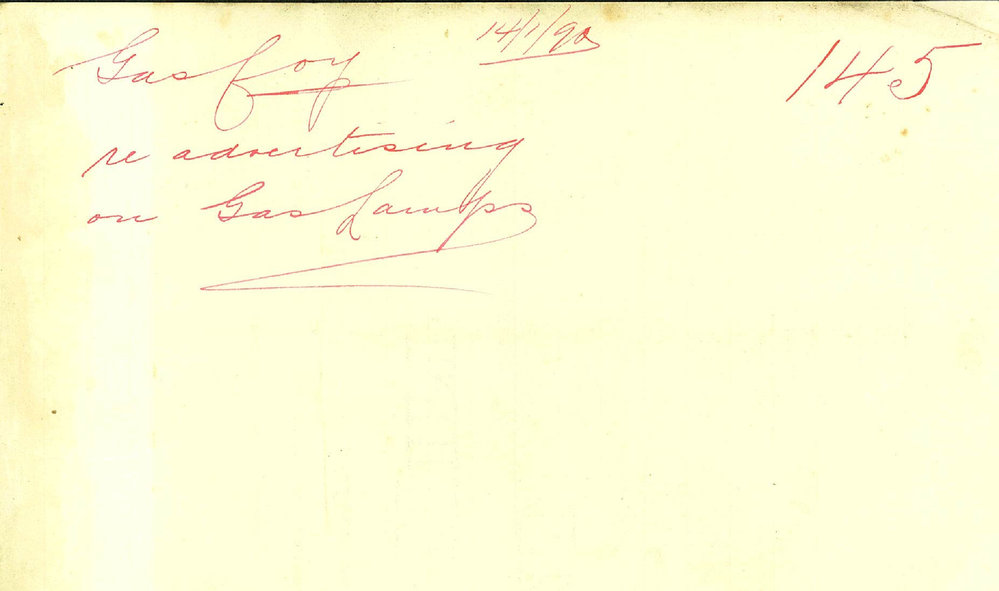 14/1/90
145
Gas Coy
re advertising
on Gas Lamps